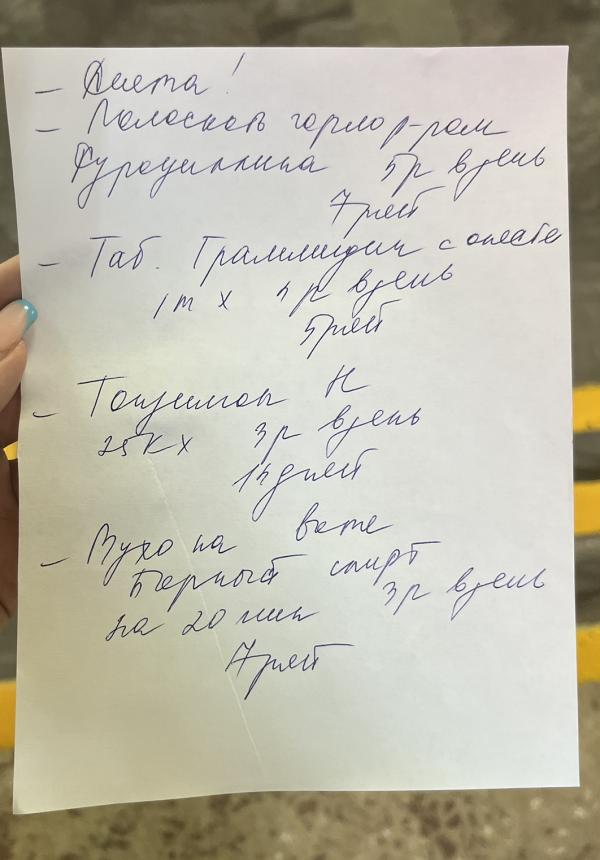 — Диета!
— Полоскать горло р-ром
Фурацилина 5р в день
7 дней
— Таб. Граммидин с анесте
1т х 4р в день
5 дней
— Тонзилгон Н
25к х 3р в день
14 дней
— В ухо на вате
Борный спирт
3р в день
на 20 мин
7 дней